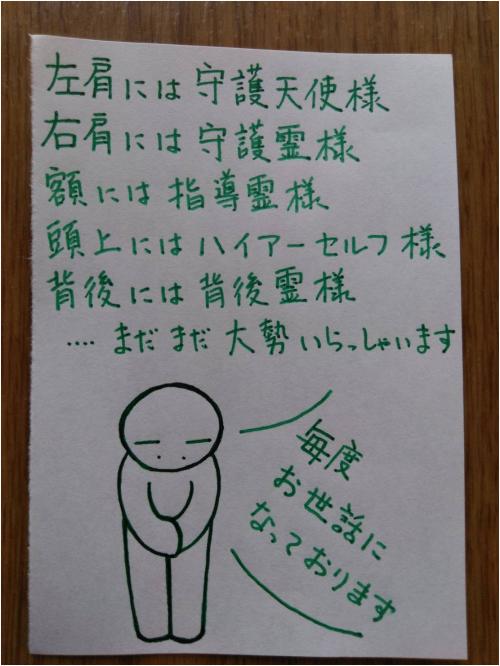 左肩には守護天使様
右肩には守護霊様
額には指導霊様
頭上にはハイアーセルフ様
背後には背後霊様
‥‥まだまだ大勢いらっしゃいます
毎度
お世話に
なっております